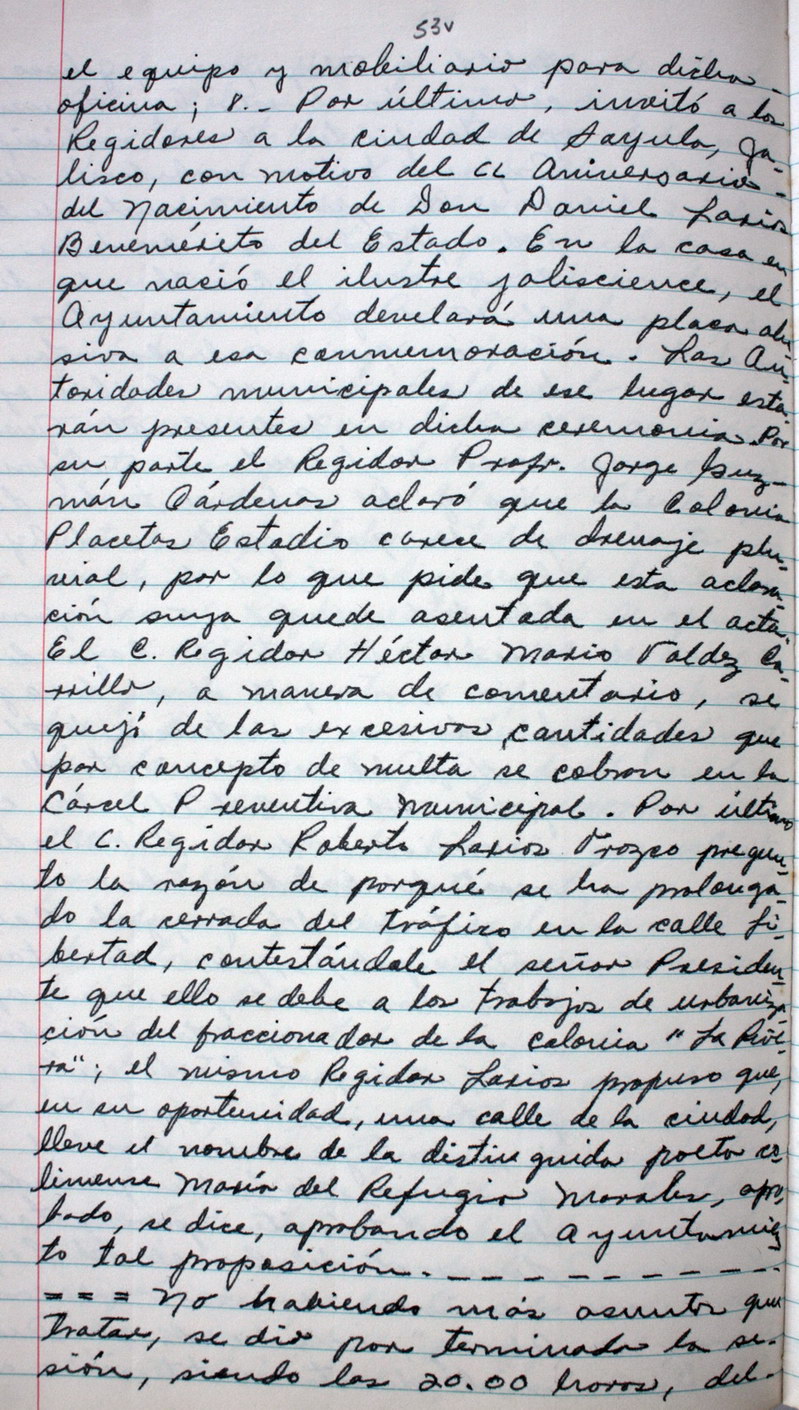 53v
el equipo y mobiliario para dicha
oficina; 8.- Por último, invitó a los
Regidores a la ciudad de Sayula, Ja-
lisco, con motivo del CL Aniversario
del Nacimiento de Don Daniel Larios
Benemérito del Estado. En la casa en
que nació el ilustre jaliscience, el
Ayuntamiento develará una placa alu
siva a esa conmemoración. Las Au-
toridades municipales de ese lugar esta-
rán presentes en dicha ceremonia. Por
su parte el Regidor Profr. Jorge Guz-
mán Cárdenas aclaró que la Colonia
Placetas Estadio carece de drenaje plu-
vial, por lo que pide que esta aclara-
ción suya quede asentada en el acta.
El C. Regidor Héctor Mario Valdez Ca-
rrillo, a manera de comentario, se
quejó de las excesivas cantidades que
por concepto de multa se cobran en la
Cárcel Preventiva Municipal. Por último
el C. Regidor Roberto Larios Orozco pregun-
to la razón de porqué se ha prolonga-
do la cerrada del tráfico en la calle Li-
bertad, contestándole el señor Presiden-
te que ello se debe a los trabajos de urbaniza-
ción del fraccionador de la colonia "La Rive-
ra"; el mismo Regidor Larios propuso que,
en su oportunidad, una calle de la ciudad,
lleve el nombre de la distinguida poeta co-
limense María del Refugio Morales, apro-
bado, se dice, aprobando el Ayuntamien-
to tal proposición. - - - - - - - - - -
= = = No habiendo más asuntos que
tratar, se dio por terminada la se-
sión, siendo las 20.00 horas, del-